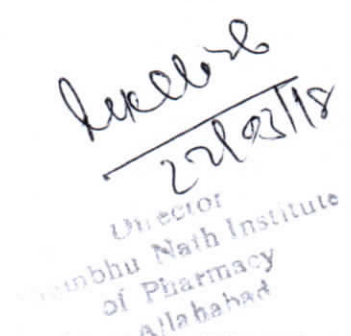 22/03/18
Director
Shambhu Nath Institute
of Pharmacy
Allahabad